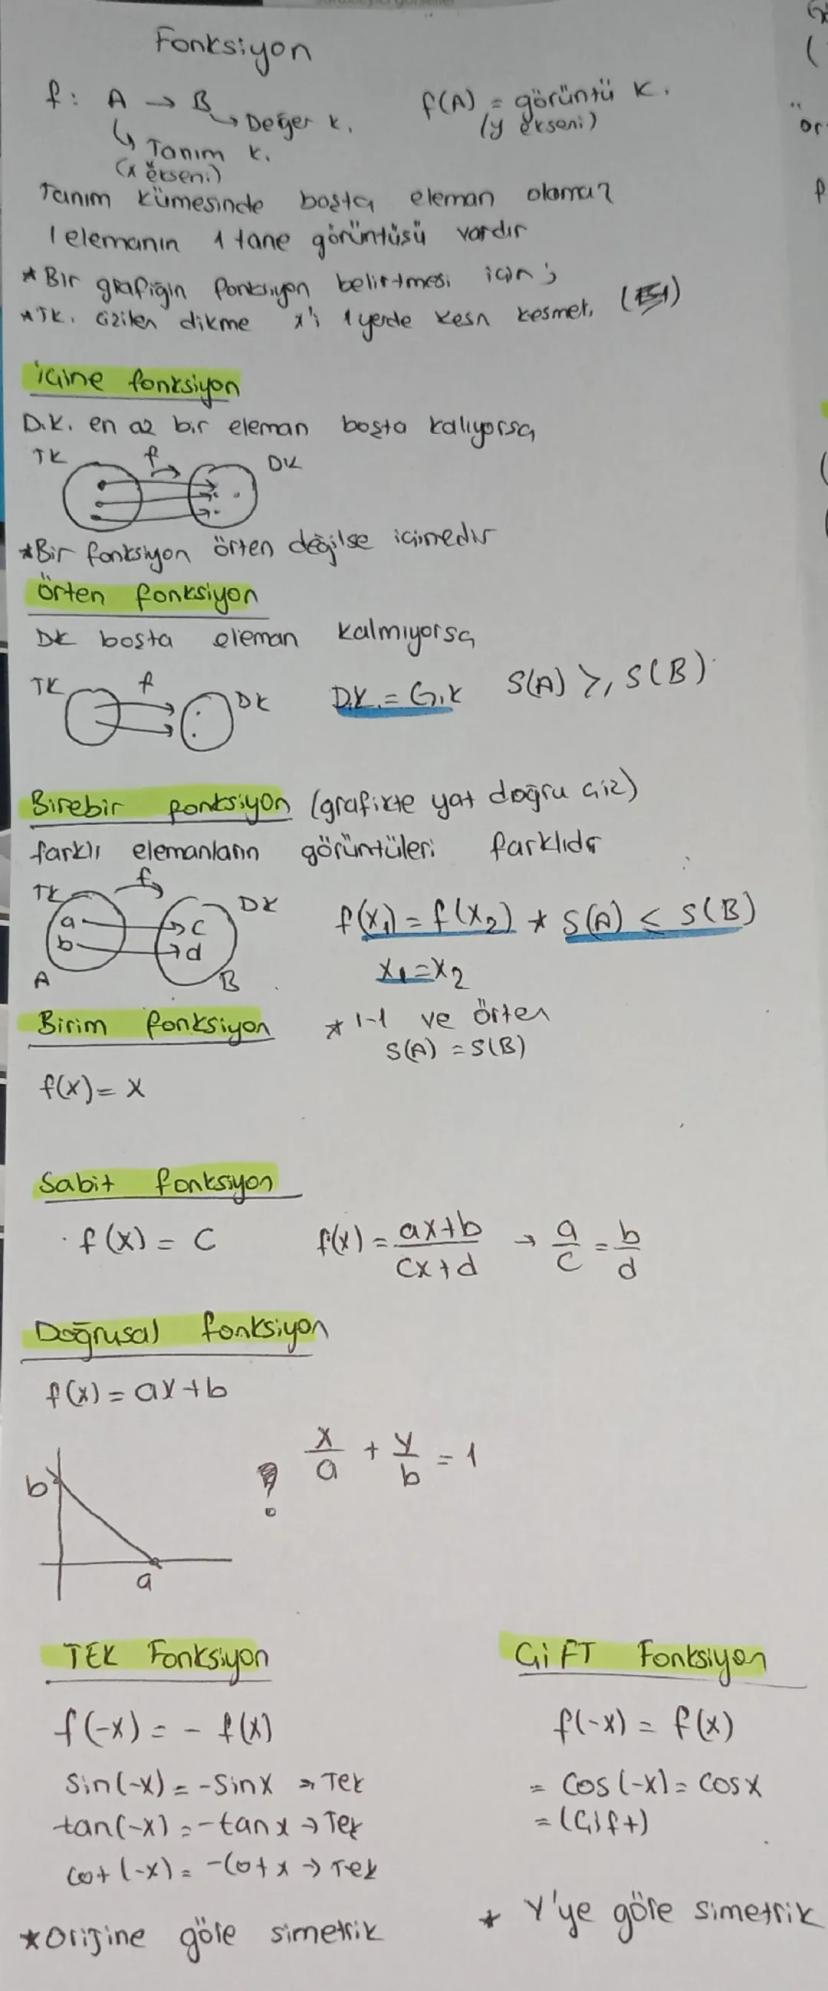 Fonksiyon
f: A → B
↳ Değer k.
f(A) = görüntü k.
(y ekseni)
↳ Tanım k.
(x ekseni)
Tanım kümesinde boşta eleman olamaz
1 elemanın 1 tane görüntüsü vardır
* Bir grafiğin fonksiyon belirtmesi için;
* TK. çizilen dikme x'i 1 yerde kesmeli.
içine fonksiyon
D.K. en az bir eleman boşta kalıyorsa
TK f DK
* Bir fonksiyon örten değilse içinedir
Örten fonksiyon
DK boşta eleman kalmıyorsa
TK f DK D.K. = G.K S(A) ≥ S(B)
Birebir fonksiyon (grafikte yat doğru çiz)
farklı elemanların görüntüleri farklıdır
TK f DK
a → c
b → d
A B
f(x₁) = f(x₂) * S(A) ≤ S(B)
x₁ = x₂
Birim fonksiyon * 1-1 ve örten
S(A) = S(B)
f(x) = x
Sabit fonksiyon
f(x) = c f(x) = ax+b / cx+d → a/c = b/d
Doğrusal fonksiyon
f(x) = ax+b
x/a + y/b = 1
b
?
a
TEK Fonksiyon
f(-x) = - f(x)
sin(-x) = -sinx → Tek
tan(-x) = -tanx → Tek
cot(-x) = -cotx → Tek
* Orijine göre simetrik
ÇİFT Fonksiyon
f(-x) = f(x)
= cos(-x) = cosx
= (Çift)
* Y'ye göre simetrik